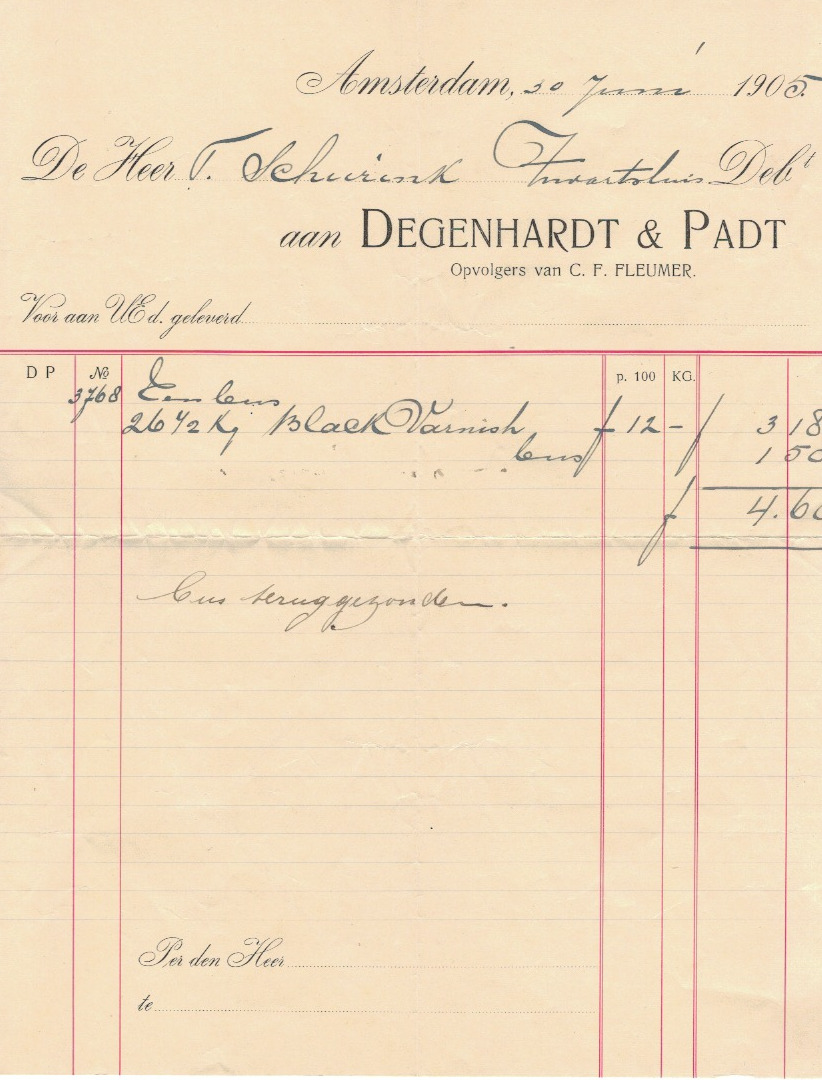 Amsterdam, 30 Juni 1905.
De Heer T. Scheurink Zwartsluis Debt
aan DEGENHARDT & PADT
Opvolgers van C. F. FLEUMER.
Voor aan UEd. geleverd
D P № p. 100 KG.
3768 Een bus
26 1/2 Kg Black Varnish f 12 - f 3 18
bus 1 50
f 4.60
bus teruggezonden.
Per den Heer
te